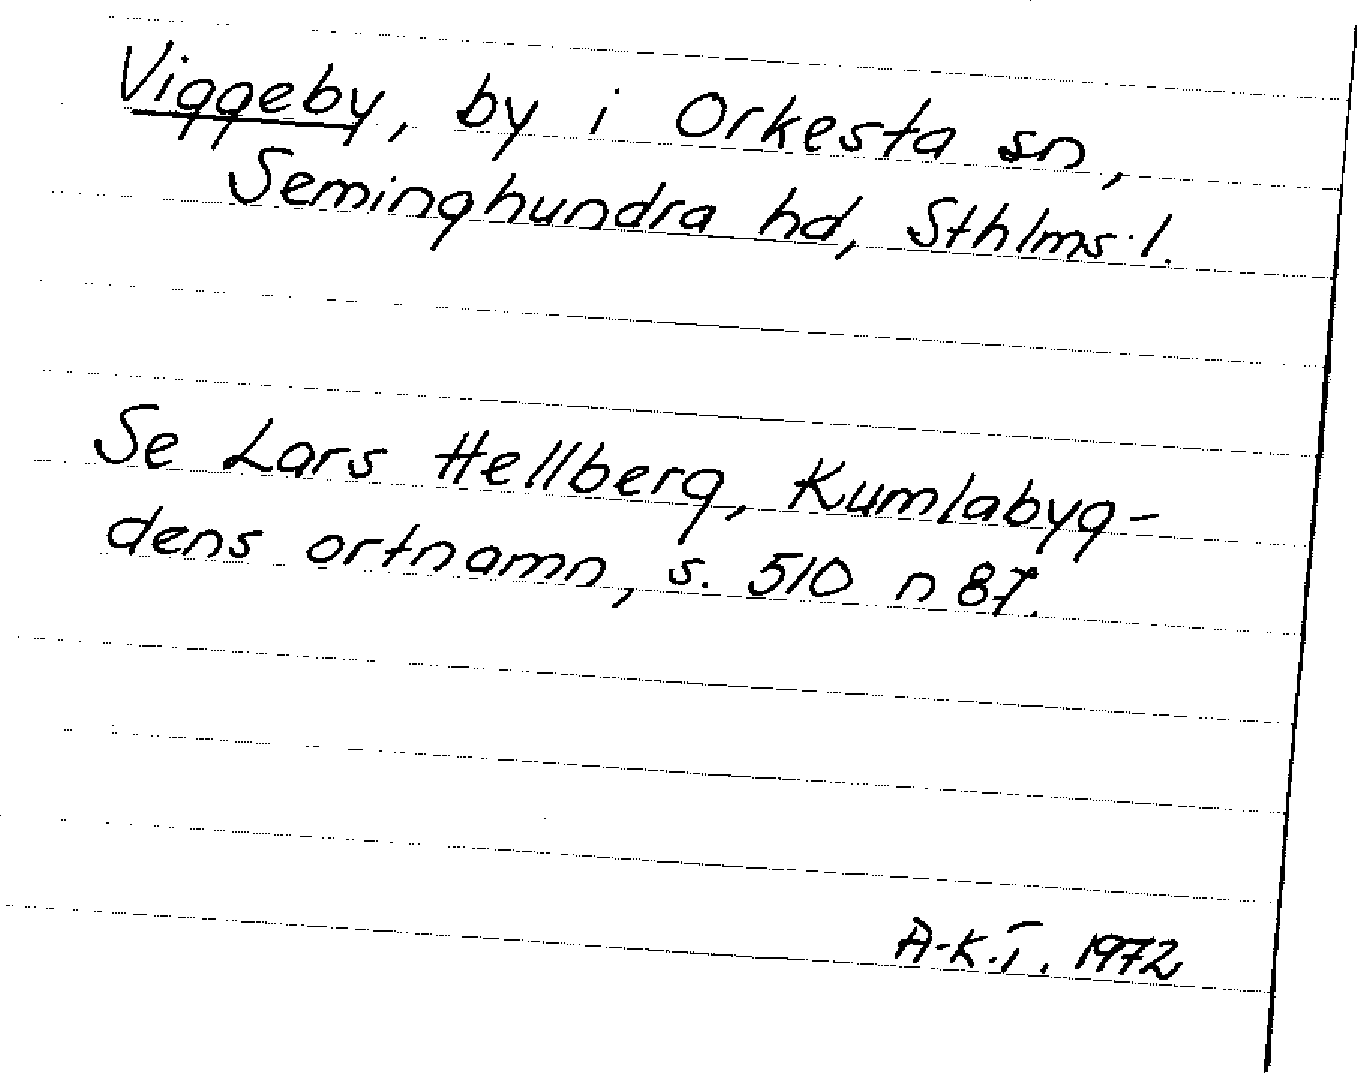 Viggeby, by i Orkesta sn,
Seminghundra hd, Sthlms l.
Se Lars Hellberg, Kumlabyg-
dens ortnamn, s. 510 n 87.
A-K.T. 1972